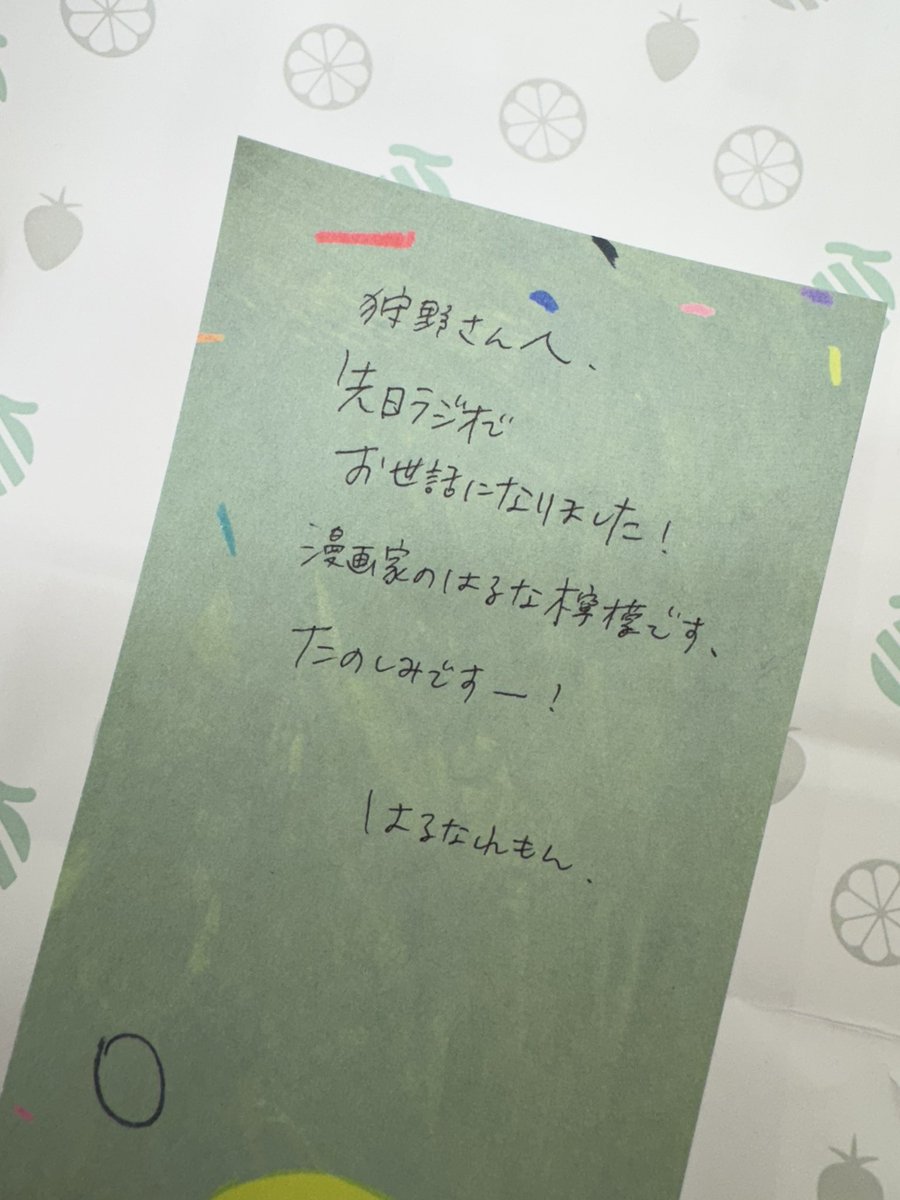 狩野さんへ、
先日ラジオで
お世話になりました!
漫画家のはるな檸檬です、
たのしみですー!
はるなれもん.